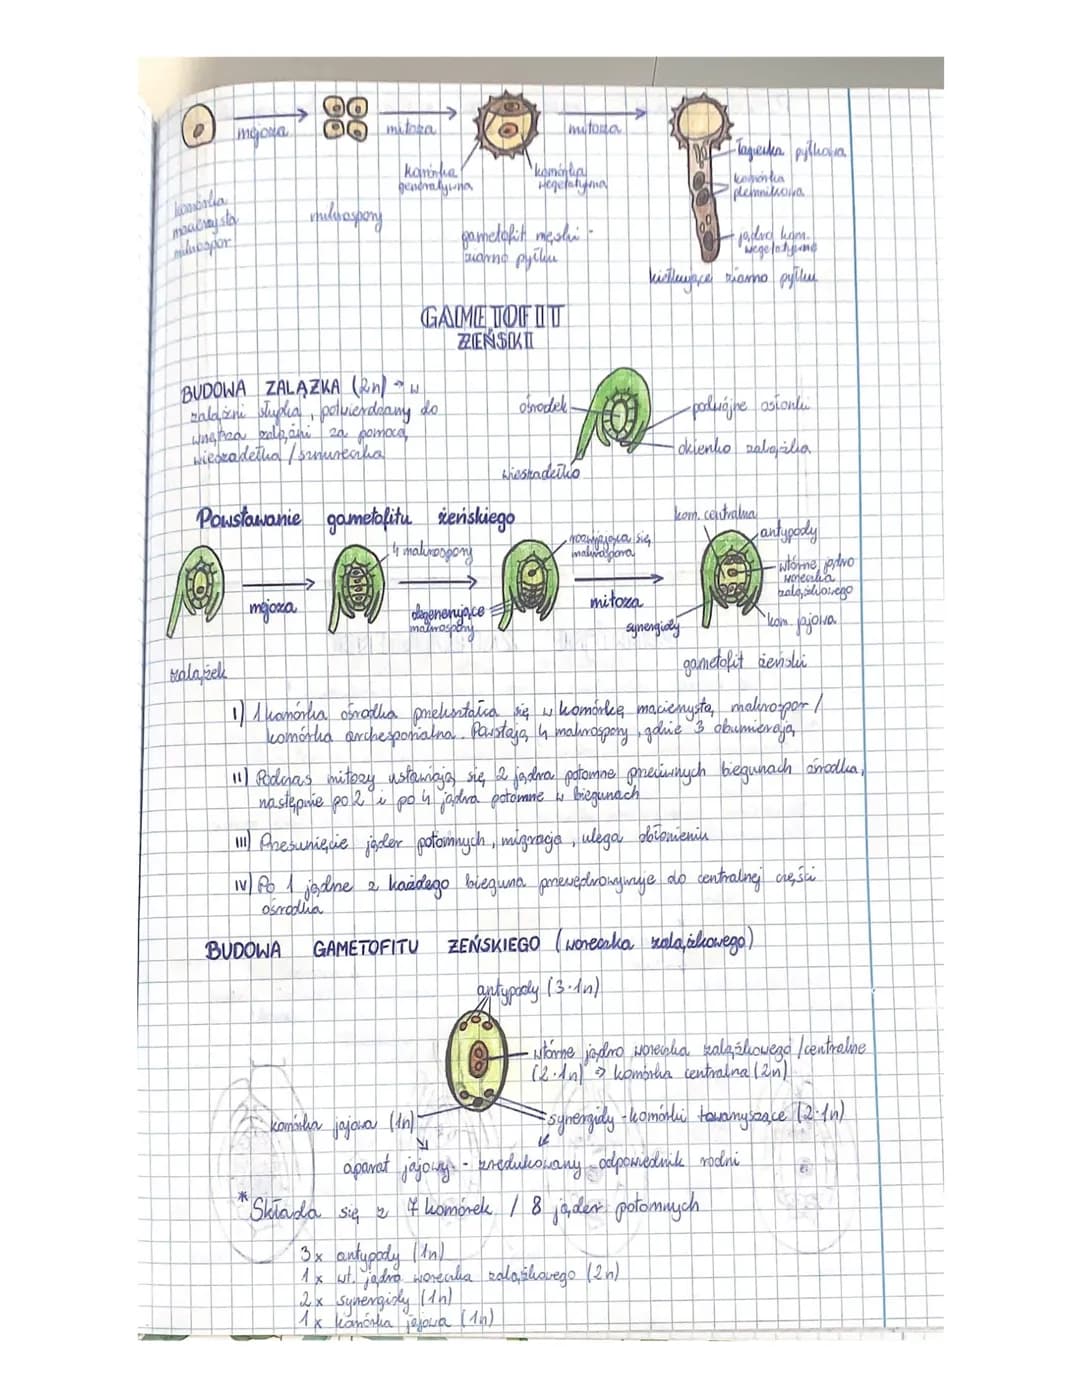 mejoza
mitoza
mitoza
komórka
macierzysta
mikrospor
mikrospory
komórka
generatywna
komórka
wegetatywna
gametofit męski -
ziarno pyłku
łagiewka pyłkowa
komórka
plemnikowa
jądro kom.
wegetatywne
kiełkujące ziarno pyłku
GAMETOFIT
ŻEŃSKI
BUDOWA ZALĄŻKA (2n) → w
zalążni słupka, potwierdzany do
wnętrza zalążni za pomocą
wieszadełka / sznureczka
ośrodek
podwójne osłonki
okienko zalążka
wieszadełko
Powstawanie gametofitu żeńskiego
zalążek
mejoza
4 makrospory
degenerujące
makrospory
rozwijająca się
makrospora
mitoza
kom. centralna
antypody
wtórne jądro
woreczka
zalążkowego
kom. jajowa
synergidy
gametofit żeński
I) 1 komórka ośrodka przekształca się w komórkę macierzystą makrospor /
komórka archesporialna. Powstają 4 makrospory, gdzie 3 obumierają
II) Podczas mitozy ustawiają się 2 jądra potomne przeciwnych biegunach ośrodka,
następnie po 2 i po 4 jądra potomne w biegunach
III) Przesunięcie jąder potomnych, migracja, ulega obłonieniu
IV) Po 1 jądrze z każdego bieguna przewędrowywuje do centralnej części
ośrodka
BUDOWA GAMETOFITU ŻEŃSKIEGO (woreczka zalążkowego)
antypody (3·1n)
wtórne jądro woreczka zalążkowego /centralne
(2·1n) → komórka centralna (2n)
komórka jajowa (1n)
synergidy - komórki towarzyszące (2·1n)
aparat jajowy - zredukowany odpowiednik rodni
* Składa się z 7 komórek / 8 jąder potomnych
3x antypody (1n)
1x wt. jądro woreczka zalążkowego (2n)
2x synergidy (1n)
1x komórka jajowa (1n)